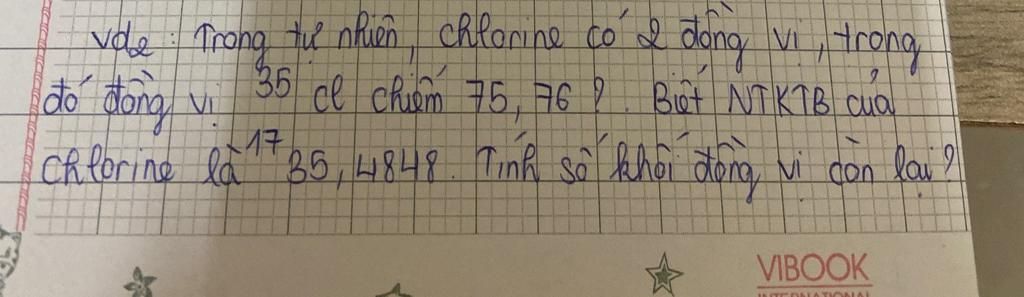 vd2: Trong tự nhiên, chlorine có 2 đồng vị, trong
đó đồng vị 35 17 Cl chiếm 75,76?. Biết NTKTB của
chlorine là 35,4848. Tính số khối đồng vị còn lại?
VIBOOK
INTERNATIONAL